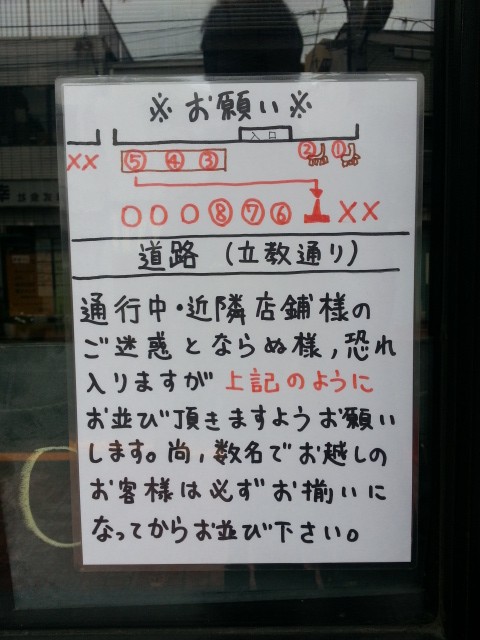 ※お願い※
入口
×× ⑤ ④ ③ ② ①
○ ○ ○ ⑧ ⑦ ⑥ ××
道路 (立教通り)
通行中・近隣店舗様の
ご迷惑とならぬ様,恐れ
入りますが上記のように
お並び頂きますようお願い
します。尚,数名でお越しの
お客様は必ずお揃いに
なってからお並び下さい。